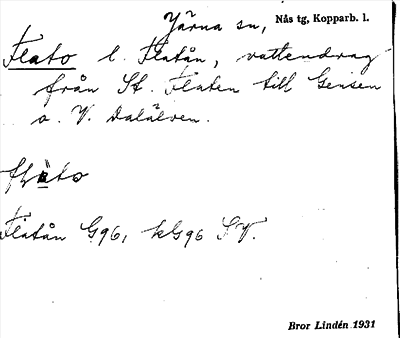 Järna sn, Nås tg, Kopparb. l.
Flato l. Flatån, vattendrag
från St. Flaten till Gensen
o. V. Dalälven.
Flatån G96, kG96 SV.
Bror Lindén 1931